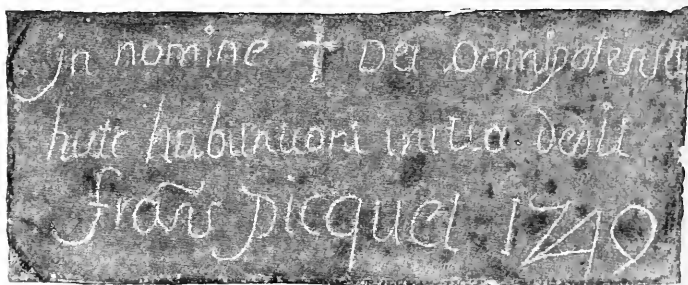 jn nomine † Dei Omnipotentis
huic habitationi initia dedit
frañs picquet 1749